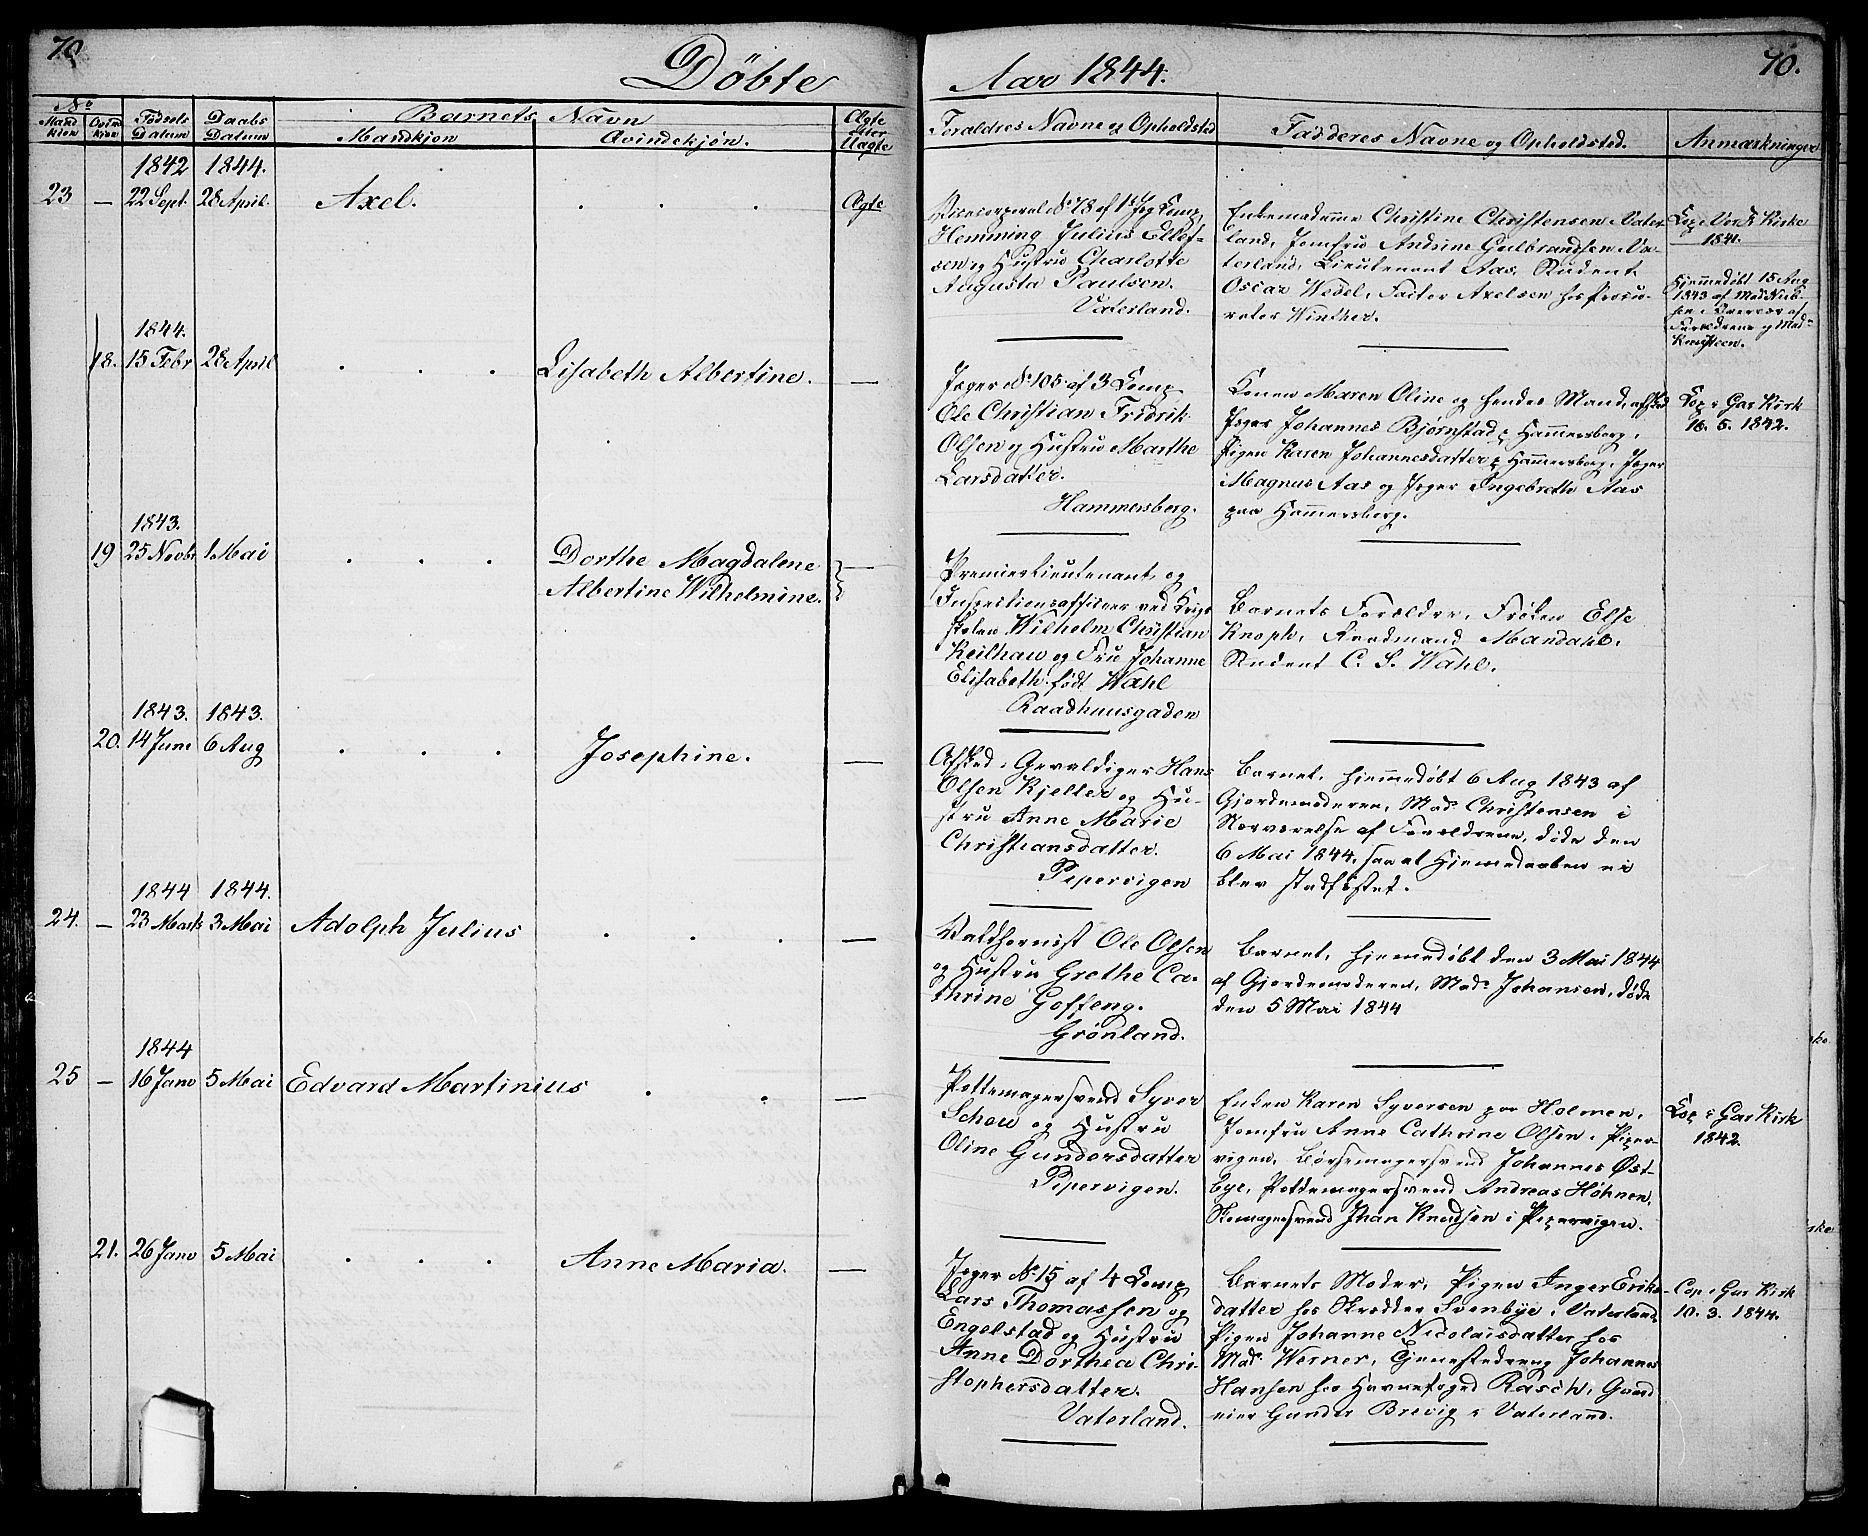 70
Döbte
Aar 1844.
70.
No
Mand kjön
Qvind kjön
Födsels Datum
Daabs Datum
Barnets Navn
Mandkjön
Qvindekjön.
Ægte eller Uægte
Foraldres Navne og Opholdsted
Fadderes Navne og Opholdsted.
Anmærkninger
1842 1844.
23 — 22 Sept. 28 April. Axel. . . . Ægte
Vicecorporal No 78 af 1ste Jeg Comp
Hemming Julius Ellef-
sen og Hustru Charlotte
Augusta Paulsen.
Vaterland.
Enkemadame Christine Christensen Vater
land, Jomfru Andrine Gulbrandsen Va-
terland, Lieutenant Aas, Student
Oscar Wedel, Factor Axelsen hos Procu-
rator Winther.
Cop i Vor Fr Kirke
1841.
Hjemmedöbt 15 Aug
1843 af Mad Niel-
sen i Nærvær af
Forældrene og Mad
Knudsen.
1844.
18. 15 Febr 28 April . . . Lisabeth Albertine. —
Jæger No 105 af 3 Comp
Ole Christian Fridrik
Olsen og Hustru Marthe
Larsdatter.
Hammersborg.
Konen Maren Oline og hendes Mand, afsked
Jæger Johannes Bjørnstad p Hammersborg,
Pigen Karen Johannesdatter p Hammersborg, Jæger
Magnus Aas og Jæger Ingebreth Aas
paa Hammersborg.
Cop i Gar Kirk
16. 5. 1842.
1843.
19 25 Novbr 1 Mai . . . Dorthe Magdalene —
Albertine Wilhelmine.
Premierlieutenant og
Inspectionsofficeer ved Krigs
skolen Wilhelm Christian
Keilhau og Fru Johanne
Elisabeth født Wahl
Raadhuusgaden
Barnets Forældre, Frøken Else
Knoph, Raadmand Mandahl,
Student C. S. Wahl.
1843. 1843.
20. 14 Juni 6 Aug . . . Josephine. —
Afsked. Gevaldiger Hans
Olsen Kjeller og Hu-
stru Anne Marie
Christiansdatter.
Pipervigen
Barnet, hjemmedøbt 6 Aug 1843 af
Gjordemoderen, Mad. Christensen i
Nærværelse af Forældrene, døde den
6 Mai 1844, saa at Hjemmedaaben ei
blev stadfæstet.
1844 1844.
24. — 23 Marts 3 Mai Adolph Julius . . . —
Valdhornist Ole Olsen
og Hustru Grethe Ca-
thrine Goffeng.
Grönland.
Barnet, hjemmedöbt den 3 Mai 1844
af Gjordemoderen, Mad. Johansen, døde
den 5 Mai 1844
1844
25 — 16 Janv 5 Mai Edvard Martinius . . —
Pottemagersvend Syver
Schou og Hustru
Oline Gundersdatter
Pipervigen.
Enken Karen Syversen paa Holmen,
Jomfru Anne Cathrine Olsen i Piper-
vigen, Børsemagersvend Johannes Øst-
bye, Pottemagersvend Andreas Høhnen,
Skomagersvend Johan Knudsen i Pipervigen.
Cop i Gar Kirk
1842.
21. 26 Janv 5 Mai . . . Anne Maria. —
Jæger No 15 af 4 Comp
Lars Thomassen og
Engelstad og Hustru
Anne Dorthea Chri-
stophersdatter.
Vaterland.
Barnets Moder, Pigen Inger Eriks-
datter hos Skrædder Svenbye i Vaterland,
Pigen Johanne Nicolaisdatter hos
Mad. Werner, Tjenestedreng Johannes
Hansen hos Havnefoged Rasch, Gaard
eier Gunder Brevig i Vaterland.
Cop i Gar Kirk
10. 3. 1844.